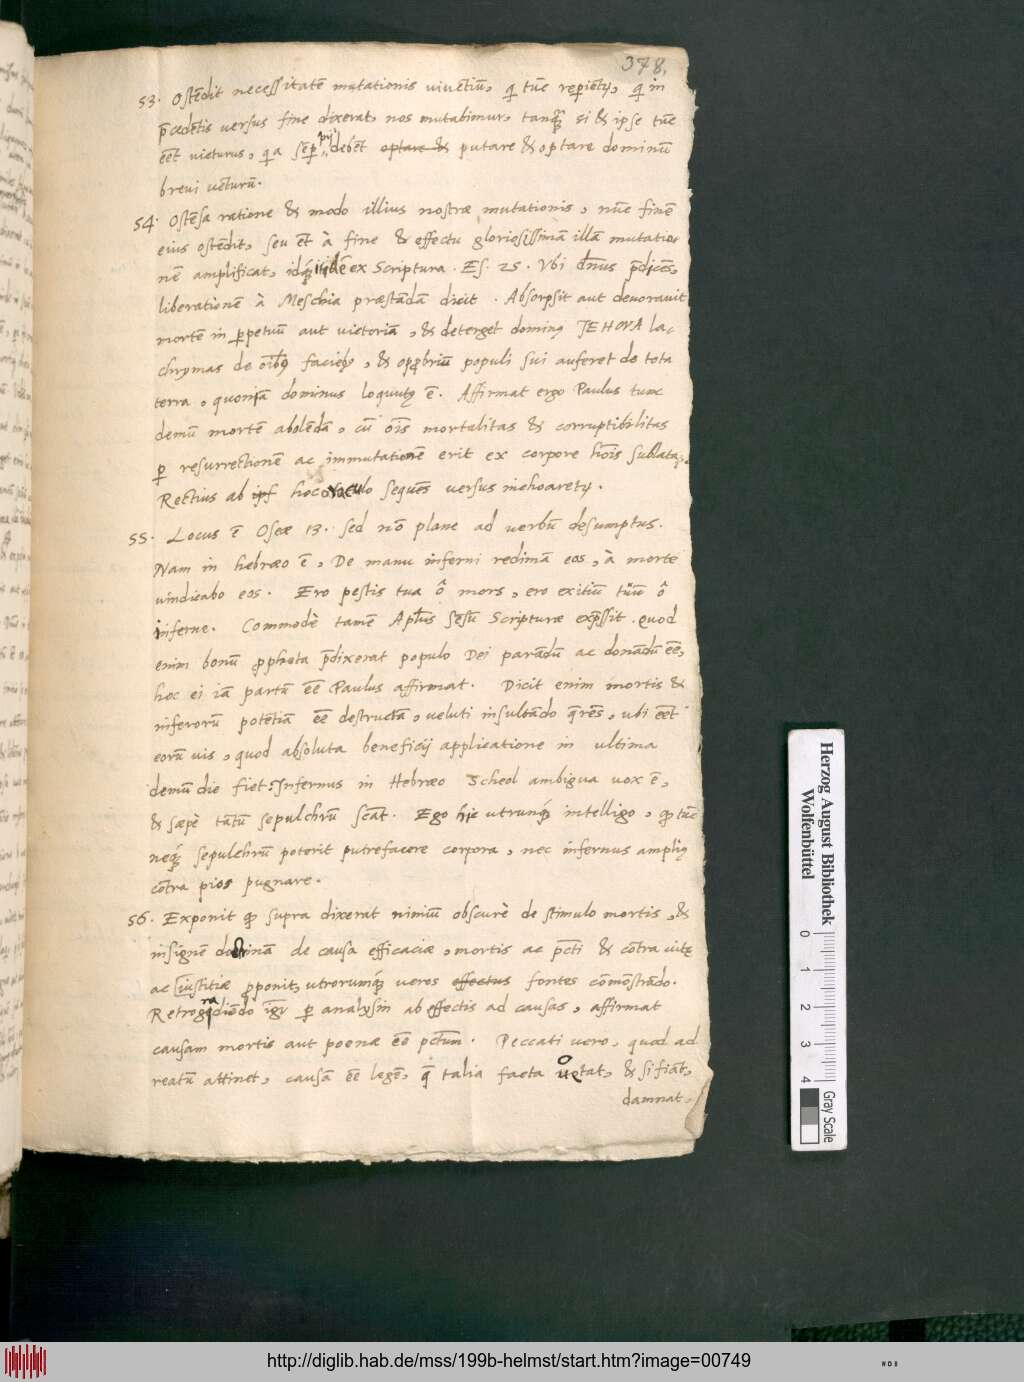 378,
53. Ostēdit necessitatē mutationis viventiū, qi tūc repiētꝰ, qi in
p̄cedētis versus fine dixerat, nos mutabimur, tanq̃ si & ipse tūc
eēt victurus, qi a sēp pij debēt optare & putare & optare dominū
brevi vēturū.
54. Ostēsa ratione & modo illius nostræ mutationis, nūc finē
eius ostēdit, seu ēt à fine & effectu gloriosissimā illā mutatio-
nē amplificat, idq́ ex Scriptura. Es. 25. Vbi dn̄us p̄dicēs,
liberationē à Meschia præstādā dicit. Absorpsit aut devoravit
mortē in ꝑpetuū aut victoriā, & deterget dominꝰ JEHOVA la-
chrymas de oībꝰ faciebꝰ, & opꝓbriū populi sui auferet de tota
terra, quoniā dominus loquutꝰ ē. Affirmat ergo Paulus tunc
demū mortē abolēdā, cū oīs mortalitas & corruptibilitas
ꝑ resurrectionē ac immutationē erit ex corpore hoīs sublata.
Rectius ab ipf hoc oraculo sequēs versus inchoaretꝰ.
55. Locus ē Oseæ 13. sed nō plane ad verbū desumptus.
Nam in hebræo ē, De manu inferni redimā eos, à morte
vindicabo eos. Ero pestis tua ô mors, ero exitiū tuū ô
inferne. Commodè tamē Apłus sēsū Scripturæ exp̄ssit. Quod
enim bonū ꝓpheta p̄dixerat populo Dei parādū ac donādū eē,
hoc ei iā partū eē Paulus affirmat. Dicit enim mortis &
inferorū potētiā eē destructā, veluti insultādo q̄rēs, ubi eēt
eorū vis, quod absoluta beneficij applicatione in ultima
demū die fiet. Infernus in Hebræo Scheol ambigua vox ē,
& sæpè tātū sepulchrū sc̄at. Ego hic utrunq́ intelligo, ꝙ tūc
neq́ sepulchrū poterit putrefacere corpora, nec infernus ampliꝰ
cōtra pios pugnare.
56. Exponit ꝙ supra dixerat nimiū obscurè de stimulo mortis, &
insignē doctrinā de causa efficaciæ, mortis ac pc̄ti & cōtra vitę
ac iustitiæ ꝓponit, utrorumq́ veros effectus fontes cōmōstrādo.
Retrogradiēdo igr̄ ꝑ analysin ab effectis ad causas, affirmat
causam mortis aut poenæ eē pctum. Peccati vero, quod ad
reatū attinet, causā eē legē, q̄ talia facta vetat, & si fiāt,
damnat,
Herzog August Bibliothek
Wolfenbüttel
0 1 2 3 4
Gray Scale
http://diglib.hab.de/mss/199b-helmst/start.htm?image=00749
WDB